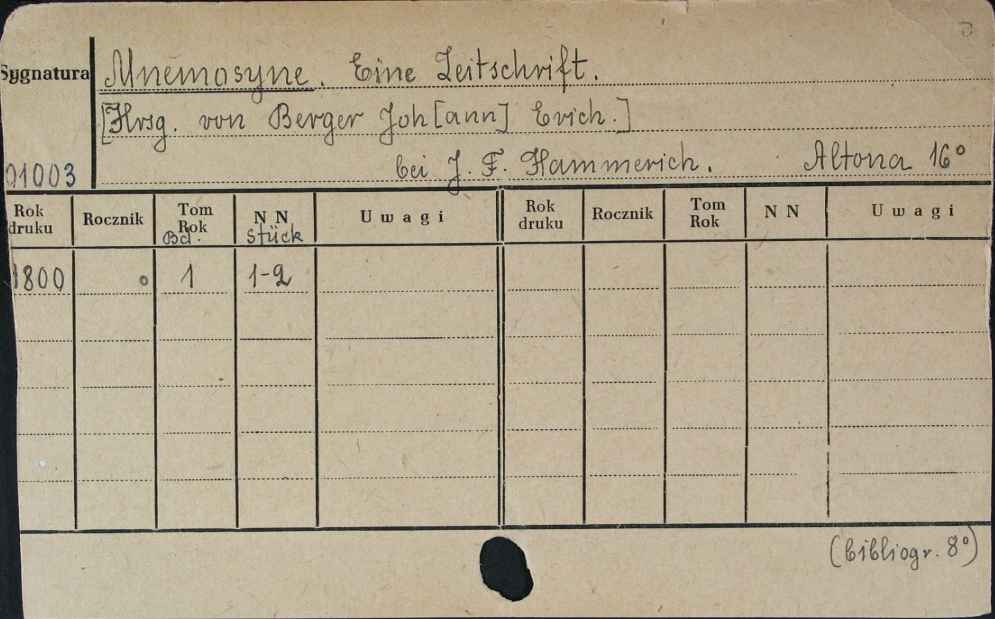 Sygnatura Mnemosyne. Eine Zeitschrift.
[Hrsg. von Berger Joh[ann] Erich.]
01003 bei J. F. Hammerich. Altona 16°
Rok druku Rocznik Tom Rok Bd. N N Stück Uwagi Rok druku Rocznik Tom Rok N N Uwagi
1800 1 1-2
(bibliogr. 8°)